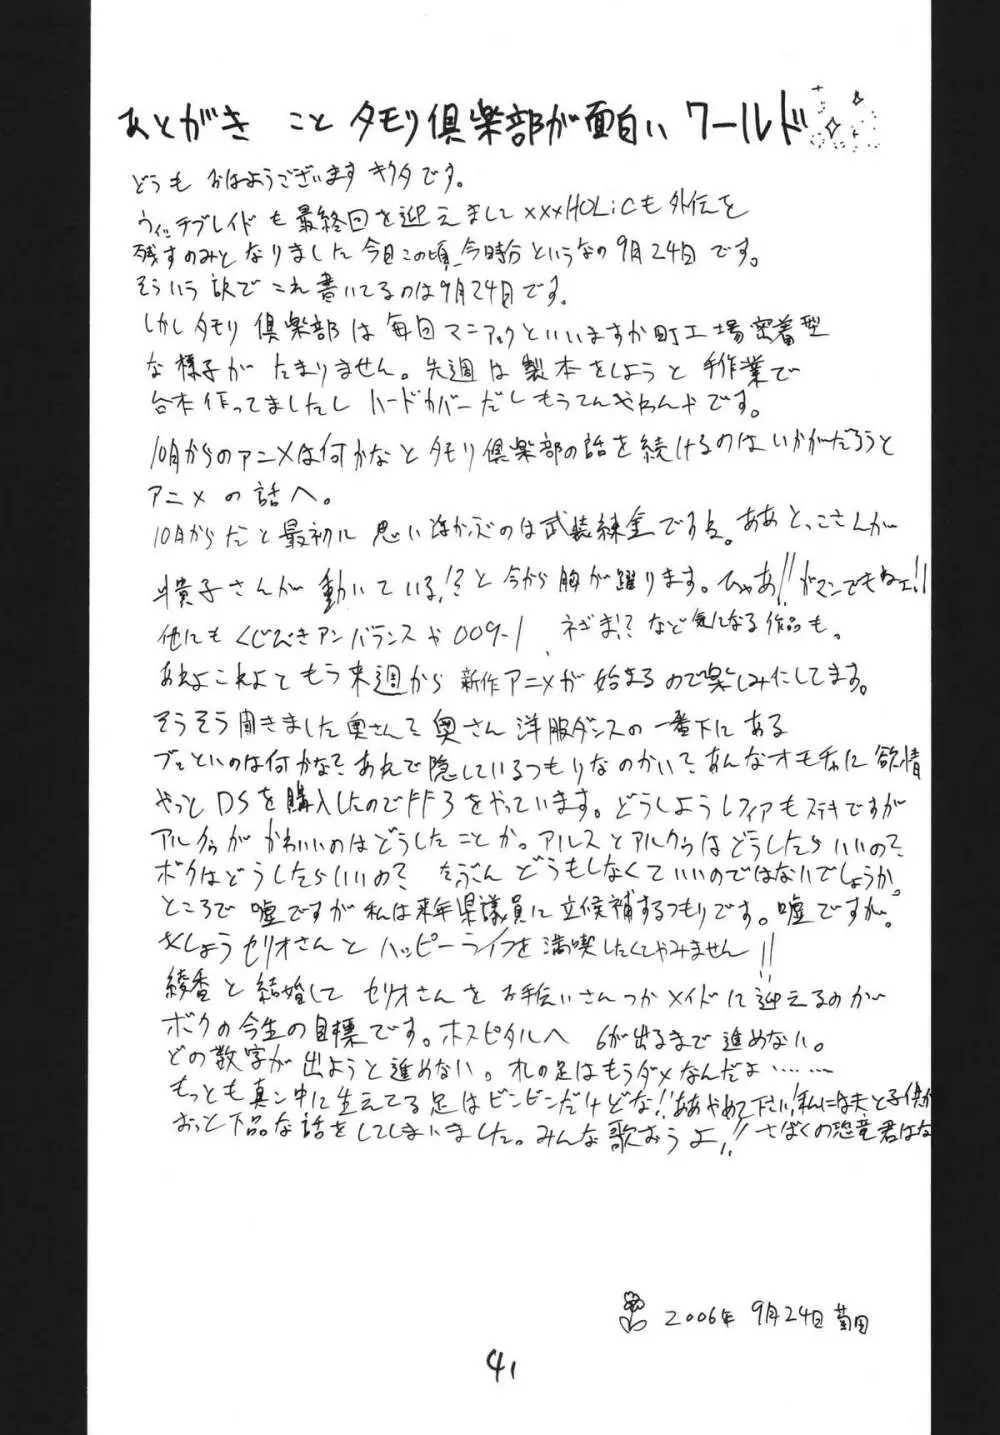 あとがき こと タモリ倶楽部が面白い ワールド
どうも おはようございます キクタです。
ウィッチブレイドも最終回を迎えまして xxxHOLiCも外伝を
残すのみとなりました今日この頃、今時分というなの9月24日です。
そういう訳でこれ書いてるのは9月24日です。
しかしタモリ倶楽部は毎回マニアックといいますか町工場密着型
な様子がたまりません。先週は製本をしようと手作業で
合本作ってましたし ハードカバーだし もうてんやわんやです。
10月からのアニメは何かなとタモリ倶楽部の話を続けるのはいかがだろうと
アニメの話へ。
10月からだと最初に思い浮かぶのは武装錬金ですね。ああとっこさんが
斗貴子さんが動いている!?と今から胸が躍ります。ひゃあ!!がマンでもねェ!!
他にもくじびきアンバランスや009-1、ネギま!?など気になる作品も。
あれよこれよともう来週から新作アニメが始まるので楽しみにしてます。
そうそう聞きました奥さんて奥さん洋服ダンスの一番下にある
ブツといのは何かな?あれで隠しているつもりなのかい?あんなオモチャに欲情
やっとDSを購入したのでFF3をやっています。どうしようレフィアもステキですが
アルクゥがかわいいのはどうしたことか。アルスとアルクゥはどうしたらいいの?
ボクはどうしたらいいの? たぶんどうもしなくていいのではないでしょうか。
ところで嘘ですが私は来年県議員に立候補するつもりです。嘘ですが。
くしょうセリオさんとハッピーライフを満喫したくてやみません!!
綾香と結婚してセリオさんをお手伝いさんつかメイドに迎えるのが
ボクの今生の目標です。ホスピタルへ 6が出るまで進めない。
どの数字が出ようと進めない。オレの足はもうダメなんだよ……
もっとも真ン中に生えてる足はビンビンだけどな!!ああやめて下さい!私には夫と子供が
おっと下品な話をしてしまいました。みんな歌おうよ!!さばくの恐竜君はな
2006年 9月24日 菊田
41